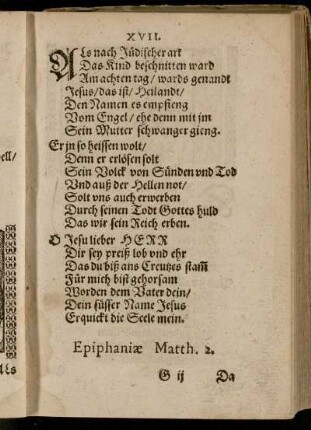 XVII.
Als nach Jüdischer art
Das Kind beschnitten ward
Am achten tag/ wards genandt
Jesus/ das ist/ Heilandt/
Den Namen es empfieng
Vom Engel/ ehe denn mit jm
Sein Mutter schwanger gieng.
Er jn so heissen wolt/
Denn er erlösen solt
Sein Volck von Sünden vnd Tod
Vnd auß der Hellen not/
Solt vns auch erwerben
Durch seinen Todt Gottes huld
Das wir sein Reich erben.
O Jesu lieber HERR
Dir sey preiß lob vnd ehr
Das du biß ans Creutzes stam̃
Für mich bist gehorsam
Worden dem Vater dein/
Dein süsser Name Jesus
Erquickt die Seele mein.
Epiphaniæ Matth. 2.
G ij Da
ell/
Als